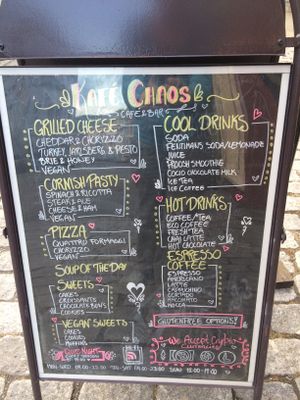 Kafé Chaos
CAFÉ & BAR
GRILLED CHEESE
CHEDDAR & CHORYZZO
TURKEY, JARLSBERG & PESTO
BRIE & HONEY
VEGAN
CORNISH PASTY
SPINACH & RICOTTA
STEAK & ALE
CHEESE & HAM
VEGAN
PIZZA
QUATTRO FORMAGGI
CHORYZZO
SOUP OF THE DAY
SWEETS
CAKES
CROISSANTS
CHOCOLATE BOWLS
COOKIES
VEGAN SWEETS
CAKES
COOKIES
MUFFINS
COOL DRINKS
SODA
FENTIMAN'S SODA/LEMONADE
JUICE
FROOSH SMOOTHIE
COCIO CHOCOLATE MILK
ICE TEA
ICE COFFEE
HOT DRINKS
COFFEE/TEA
ECO COFFEE
FRESH TEA
CHAI LATTE
HOT CHOCOLATE
ESPRESSO
COFFEE
ESPRESSO
AMERICANO
LATTE
CAPUCCINO
CORTADO
MACCHIATO
MOCCA
GLUTENFREE OPTIONS!
We Accept Crypto
Currencies